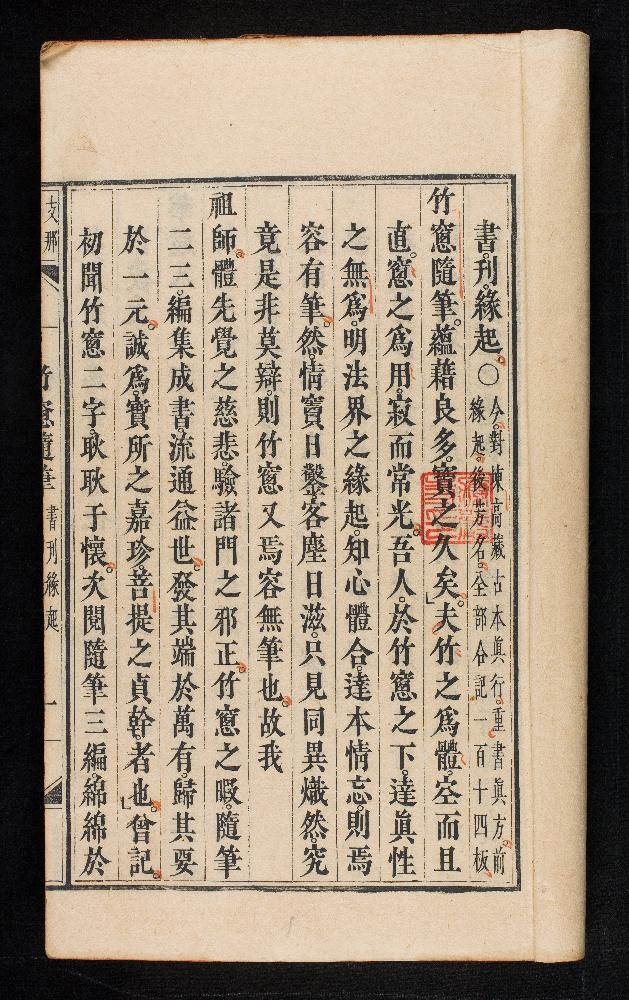 書刊緣起○今對棟高藏古本眞行重書眞方前
緣起後芳名全部合記一百十四板
竹窻隨筆。蘊藉良多。寶之久矣。夫竹之爲體。空而且
直。窻之爲用。寂而常光。吾人於竹窻之下。達眞性
之無爲。明法界之緣起。知心體合。達本情忘。則焉
容有筆。然情竇日鑿。客塵日滋。只見同異熾然。究
竟是非莫辯。則竹窻又焉容無筆也。故我
祖師體先覺之慈悲。驗諸門之邪正。竹窻之暇。隨筆
二三編集成書。流通益世。發其端於萬有。歸其要
於一元。誠爲寶所之嘉珍。菩提之貞幹者也。曾記
初聞竹窻二字。耿耿于懷。次閱隨筆三編。綿綿於
支那
竹窻隨筆 書刊緣起 一